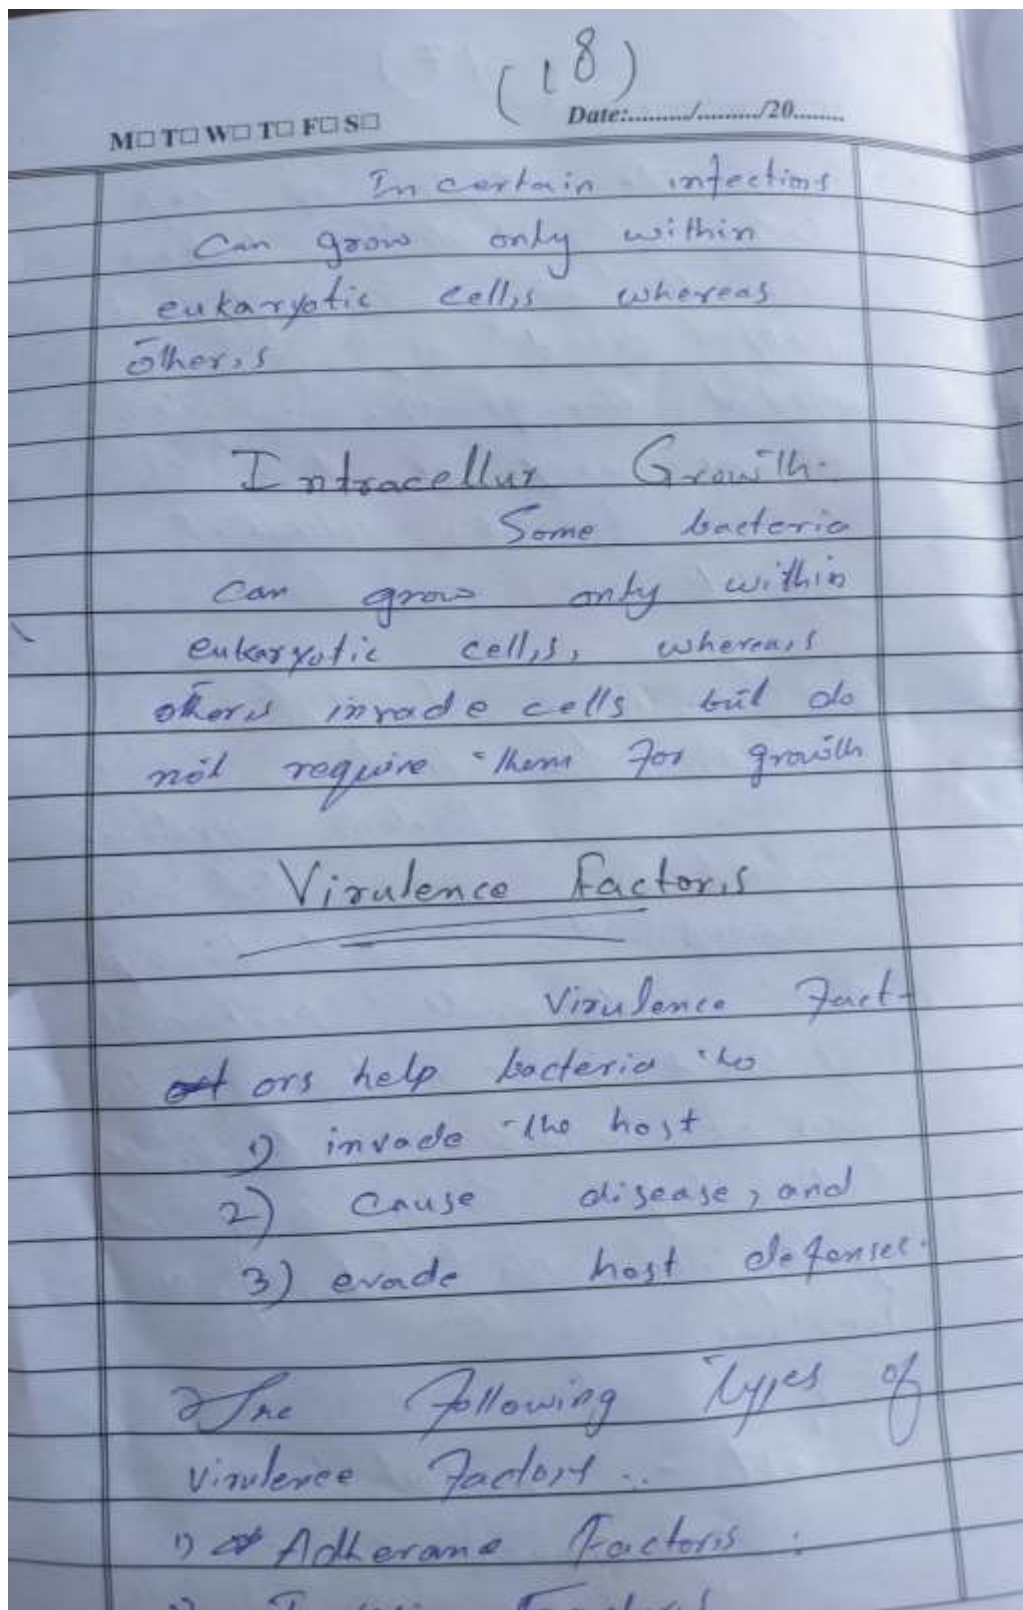 (18)
M□ T□ W□ T□ F□ S□
Date:........./........./20.........
In certain infections
Can grow only within
eukaryotic cells whereas
others
Intracellur Growth.
Some bacteria
can grow only within
eukaryotic cells, whereas
others invade cells but do
not require them for growth
Virulence Factors
Virulence Fact-
ors help bacteria to
1) invade the host
2) Cause disease, and
3) evade host defenses.
The following types of
virulence Factors ..
1) Adherane Factors :
Factors